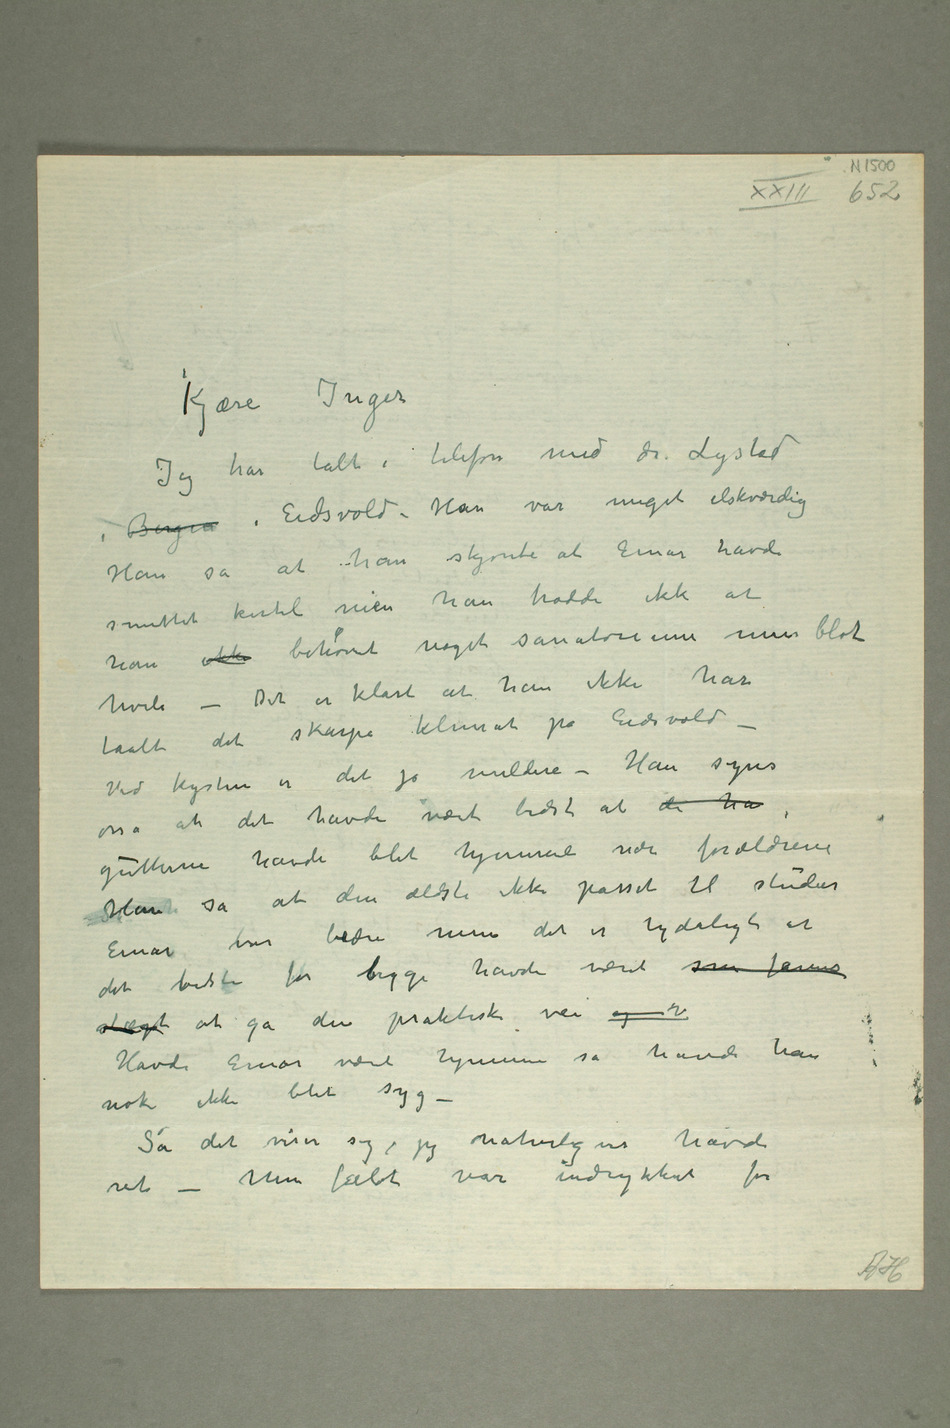 N1500
XXIII 652
Kjære Inger
Jeg har talt i telefon med dr. Lystad
i Bergen i Eidsvold – Han var meget elskværdig
Han sa at han skjønte at Einar havde
smittet kirtel men han trodde ikke at
han ikke behøvet noget sanatorium men blot
hvile – Det er klart at han ikke har
taalt det skarpe klimat på Eidsvold –
Ved kysten er det jo mildere – Han synes
også at det havde vært bedst at de ha
gutterne havde blet hjemme nær forældrene
Han sa at den ældste ikke passet til studier
Einar var bedre men det er tydeligt at
det bedste for begge havde været som farens
slægt at gå den praktiske vei og v
Havde Einar vært hjemme så havde han
nok ikke blet syg –
Så det viser sig, jeg naturligvis havde
ret – Min fælt var indrykket for
AH